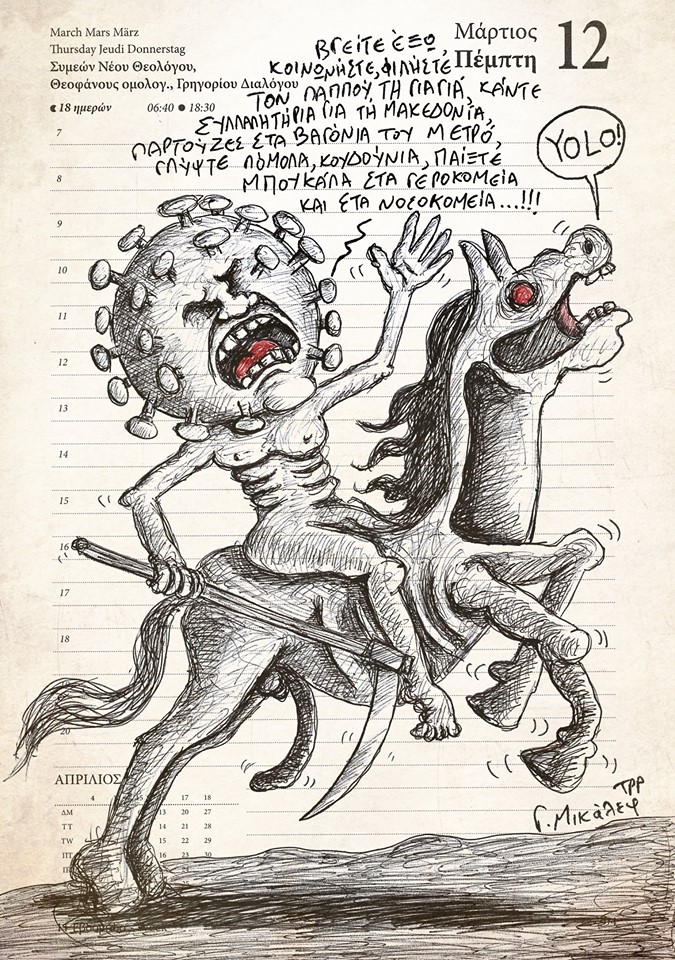 March Mars März
Thursday Jeudi Donnerstag
Συμεών Νέου Θεολόγου,
Θεοφάνους ομολογ., Γρηγορίου Διαλόγου
18 ημερών 06:40 ● 18:30
Μάρτιος
Πέμπτη
12
ΒΓΕΙΤΕ ΕΞΩ,
ΚΟΙΝΩΝΗΣΤΕ, ΦΙΛΗΣΤΕ
ΤΟΝ ΠΑΠΠΟΥ, ΤΗ ΓΙΑΓΙΑ, ΚΑΝΤΕ
ΣΥΛΛΑΛΗΤΗΡΙΑ ΓΙΑ ΤΗ ΜΑΚΕΔΟΝΙΑ,
ΠΑΡΤΟΥΖΕΣ ΣΤΑ ΒΑΓΟΝΙΑ ΤΟΥ ΜΕΤΡΟ,
ΓΛΥΨΤΕ ΠΟΜΟΛΑ, ΚΟΥΔΟΥΝΙΑ, ΠΑΙΞΤΕ
ΜΠΟΥΚΑΛΑ ΣΤΑ ΓΕΡΟΚΟΜΕΙΑ
ΚΑΙ ΣΤΑ ΝΟΣΟΚΟΜΕΙΑ...!!!
YOLO!
7
8
9
10
11
12
13
14
15
16
17
18
20
ΑΠΡΙΛΙΟΣ
4 17 18
ΔΜ 13 20 27
ΤΤ 14 21 28
TW 15 22 29
16 23 30
Γ. Μικάλεφ